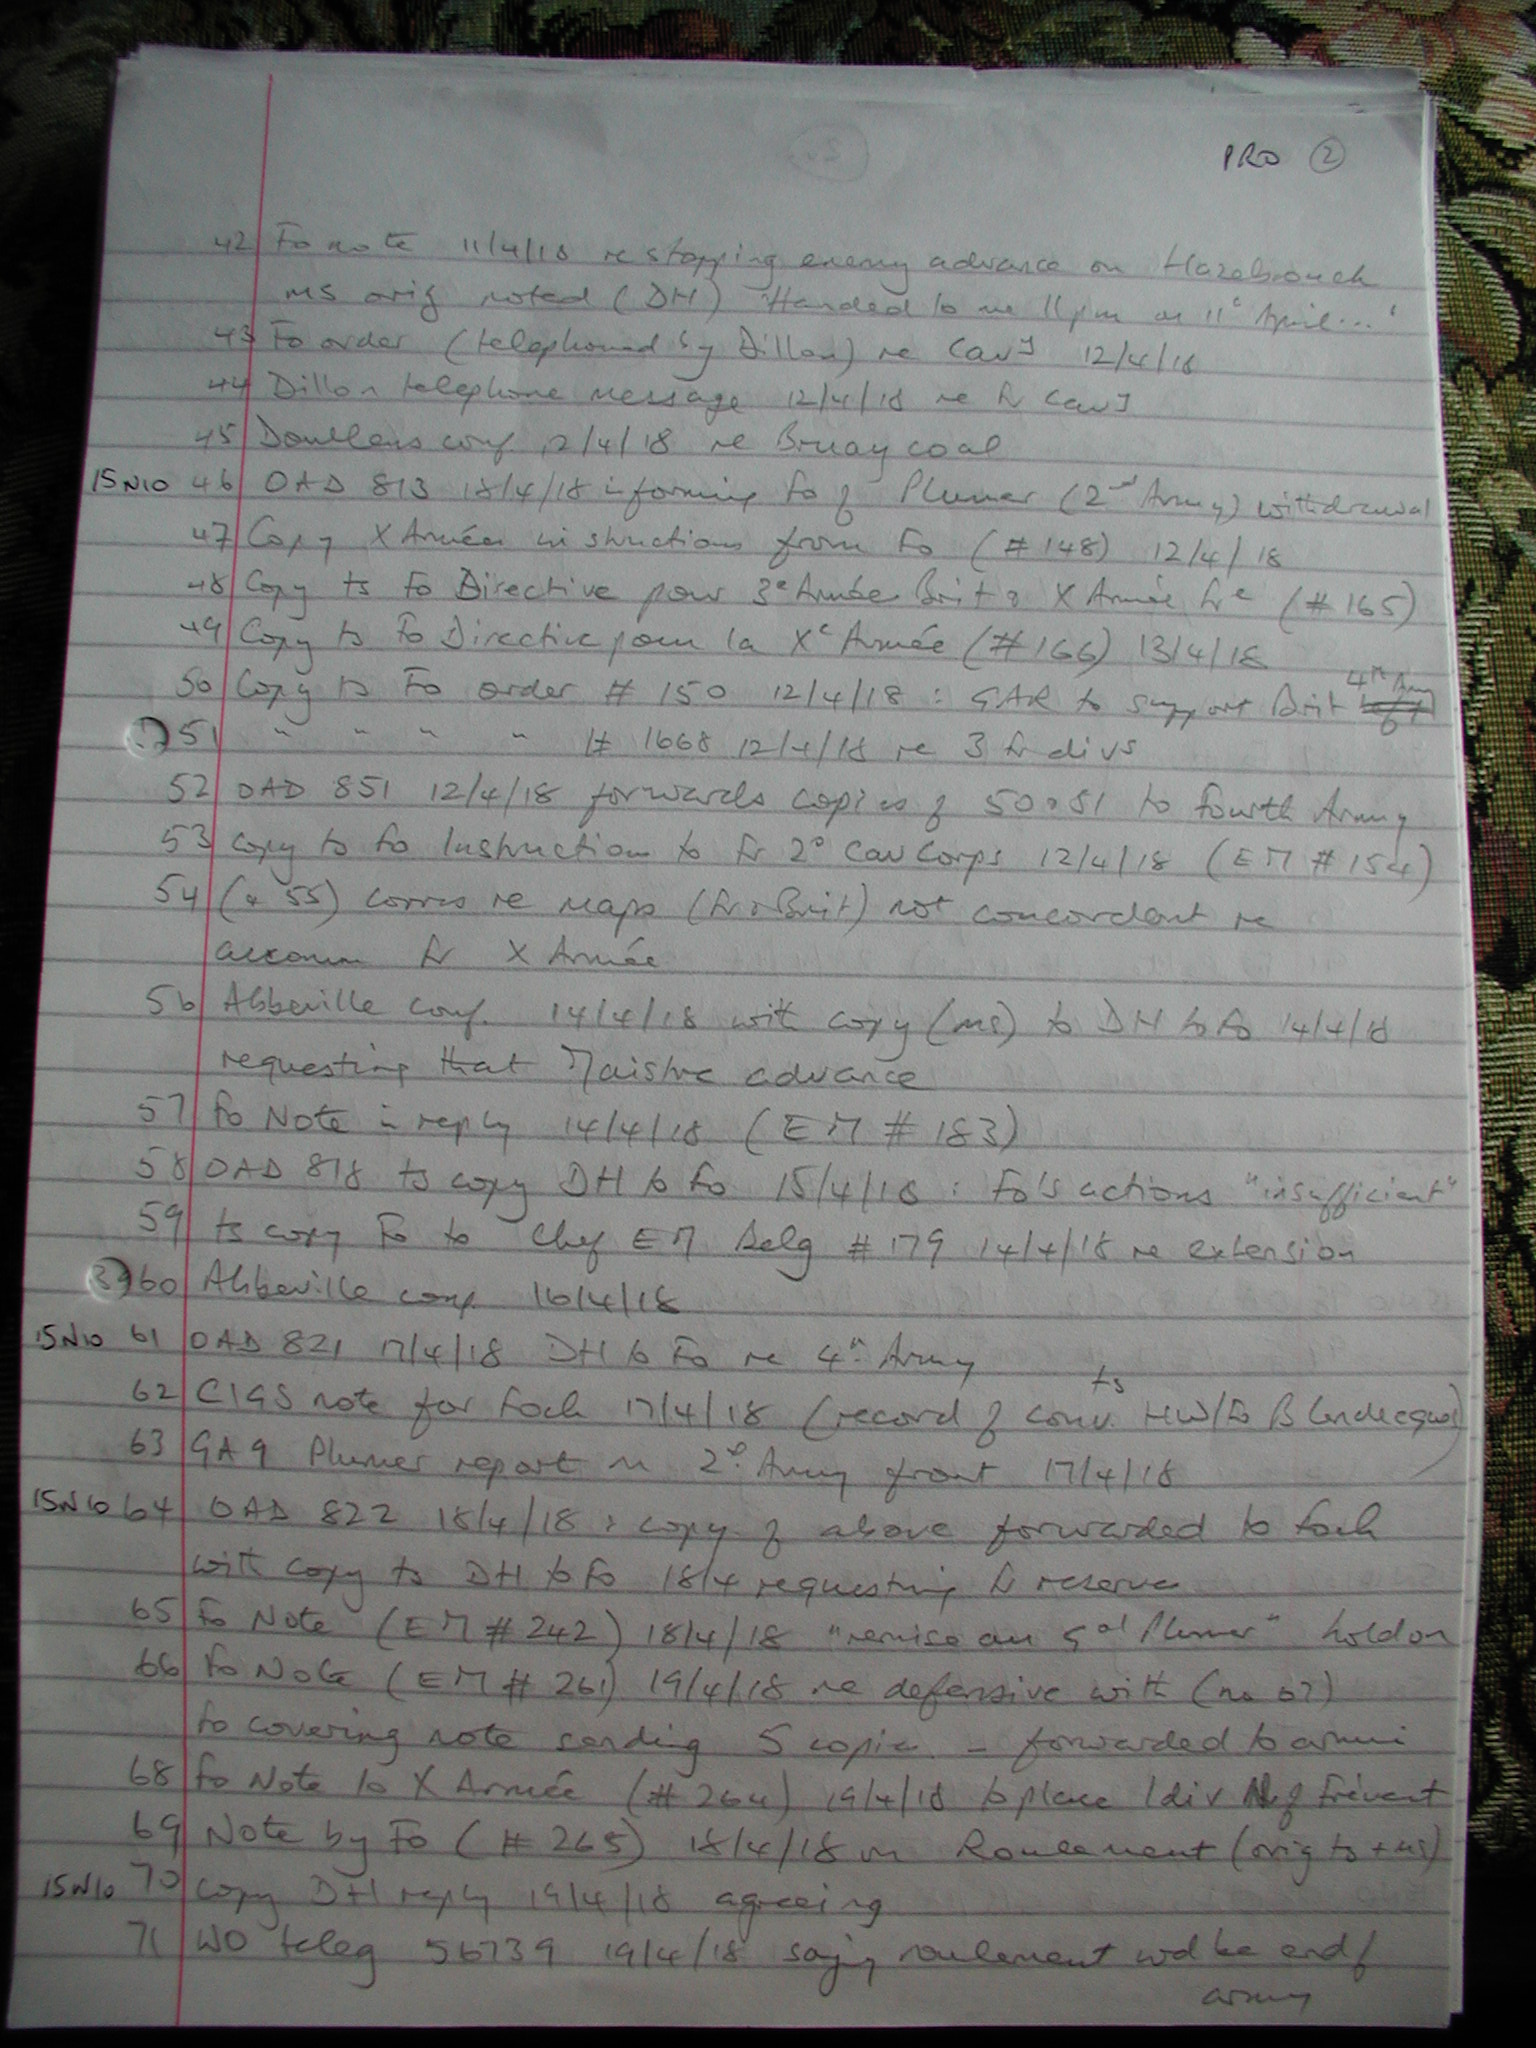 PRO 2
42 Fo note 11/4/18 re stopping enemy advance on Hazebrouck
ms orig noted (DH) "Handed to me 11pm on 11th April...'
43 Fo order (telephoned by Dillon) re Cavy 12/4/18
44 Dillon telephone message 12/4/18 re Fr Cavy
45 Doullens conf. 12/4/18 re Bruay coal
15N10 46 OAD 813 18/4/18 informing Fo of Plumer (2nd Army) withdrawal
47 Copy X Armée instructions from Fo (#148) 12/4/18
48 Copy ts Fo Directive pour 3e Armée Brit & X Armée Fre (#165)
49 Copy ts Fo Directive pour la Xe Armée (#166) 13/4/18
50 Copy ts Fo order # 150 12/4/18 : GAR to support Brit 4th Army
51 " " " " # 1668 12/4/18 re 3 Fr divs
52 OAD 851 12/4/18 forwards copies of 50 & 51 to Fourth Army
53 copy ts Fo Instruction to Fr 2e Cav Corps 12/4/18 (EM # 154)
54 (& 55) corres re maps (Fr & Brit) not concordant re
accomm Fr X Armée
56 Abbeville conf. 14/4/18 with copy (ms) ts DH to Fo 14/4/18
requesting that Maistre advance
57 Fo Note in reply 14/4/18 (EM # 183)
58 OAD 818 ts copy DH to Fo 15/4/18 : Fo's actions "insufficient"
59 ts copy Fo to Chef EM Belg # 179 14/4/18 re extension
60 Abbeville conf. 16/4/18
15N10 61 OAD 821 17/4/18 DH to Fo re 4th Army
62 CIGS note for Foch 17/4/18 (record of ts conv. HW/Fo Blendecques)
63 GA9 Plumer report on 2d Army front 17/4/18
15N10 64 OAD 822 18/4/18 : copy of above forwarded to Foch
with copy ts DH to Fo 18/4 requesting Fr reserve
65 Fo Note (EM # 242) 18/4/18 "remise au Gal Plumer" hold on
66 Fo Note (EM # 261) 19/4/18 re defensive with (no 67)
Fo covering note sending 5 copies - forwarded to armies
68 Fo Note to X Armée (# 264) 19/4/18 to place 1 div N of Frévent
69 Note by Fo (# 265) 18/4/18 on Roulement (orig ts + ms)
15N10 70 copy DH reply 19/4/18 agreeing
71 WO teleg 56739 19/4/18 saying roulement wd be end of
army